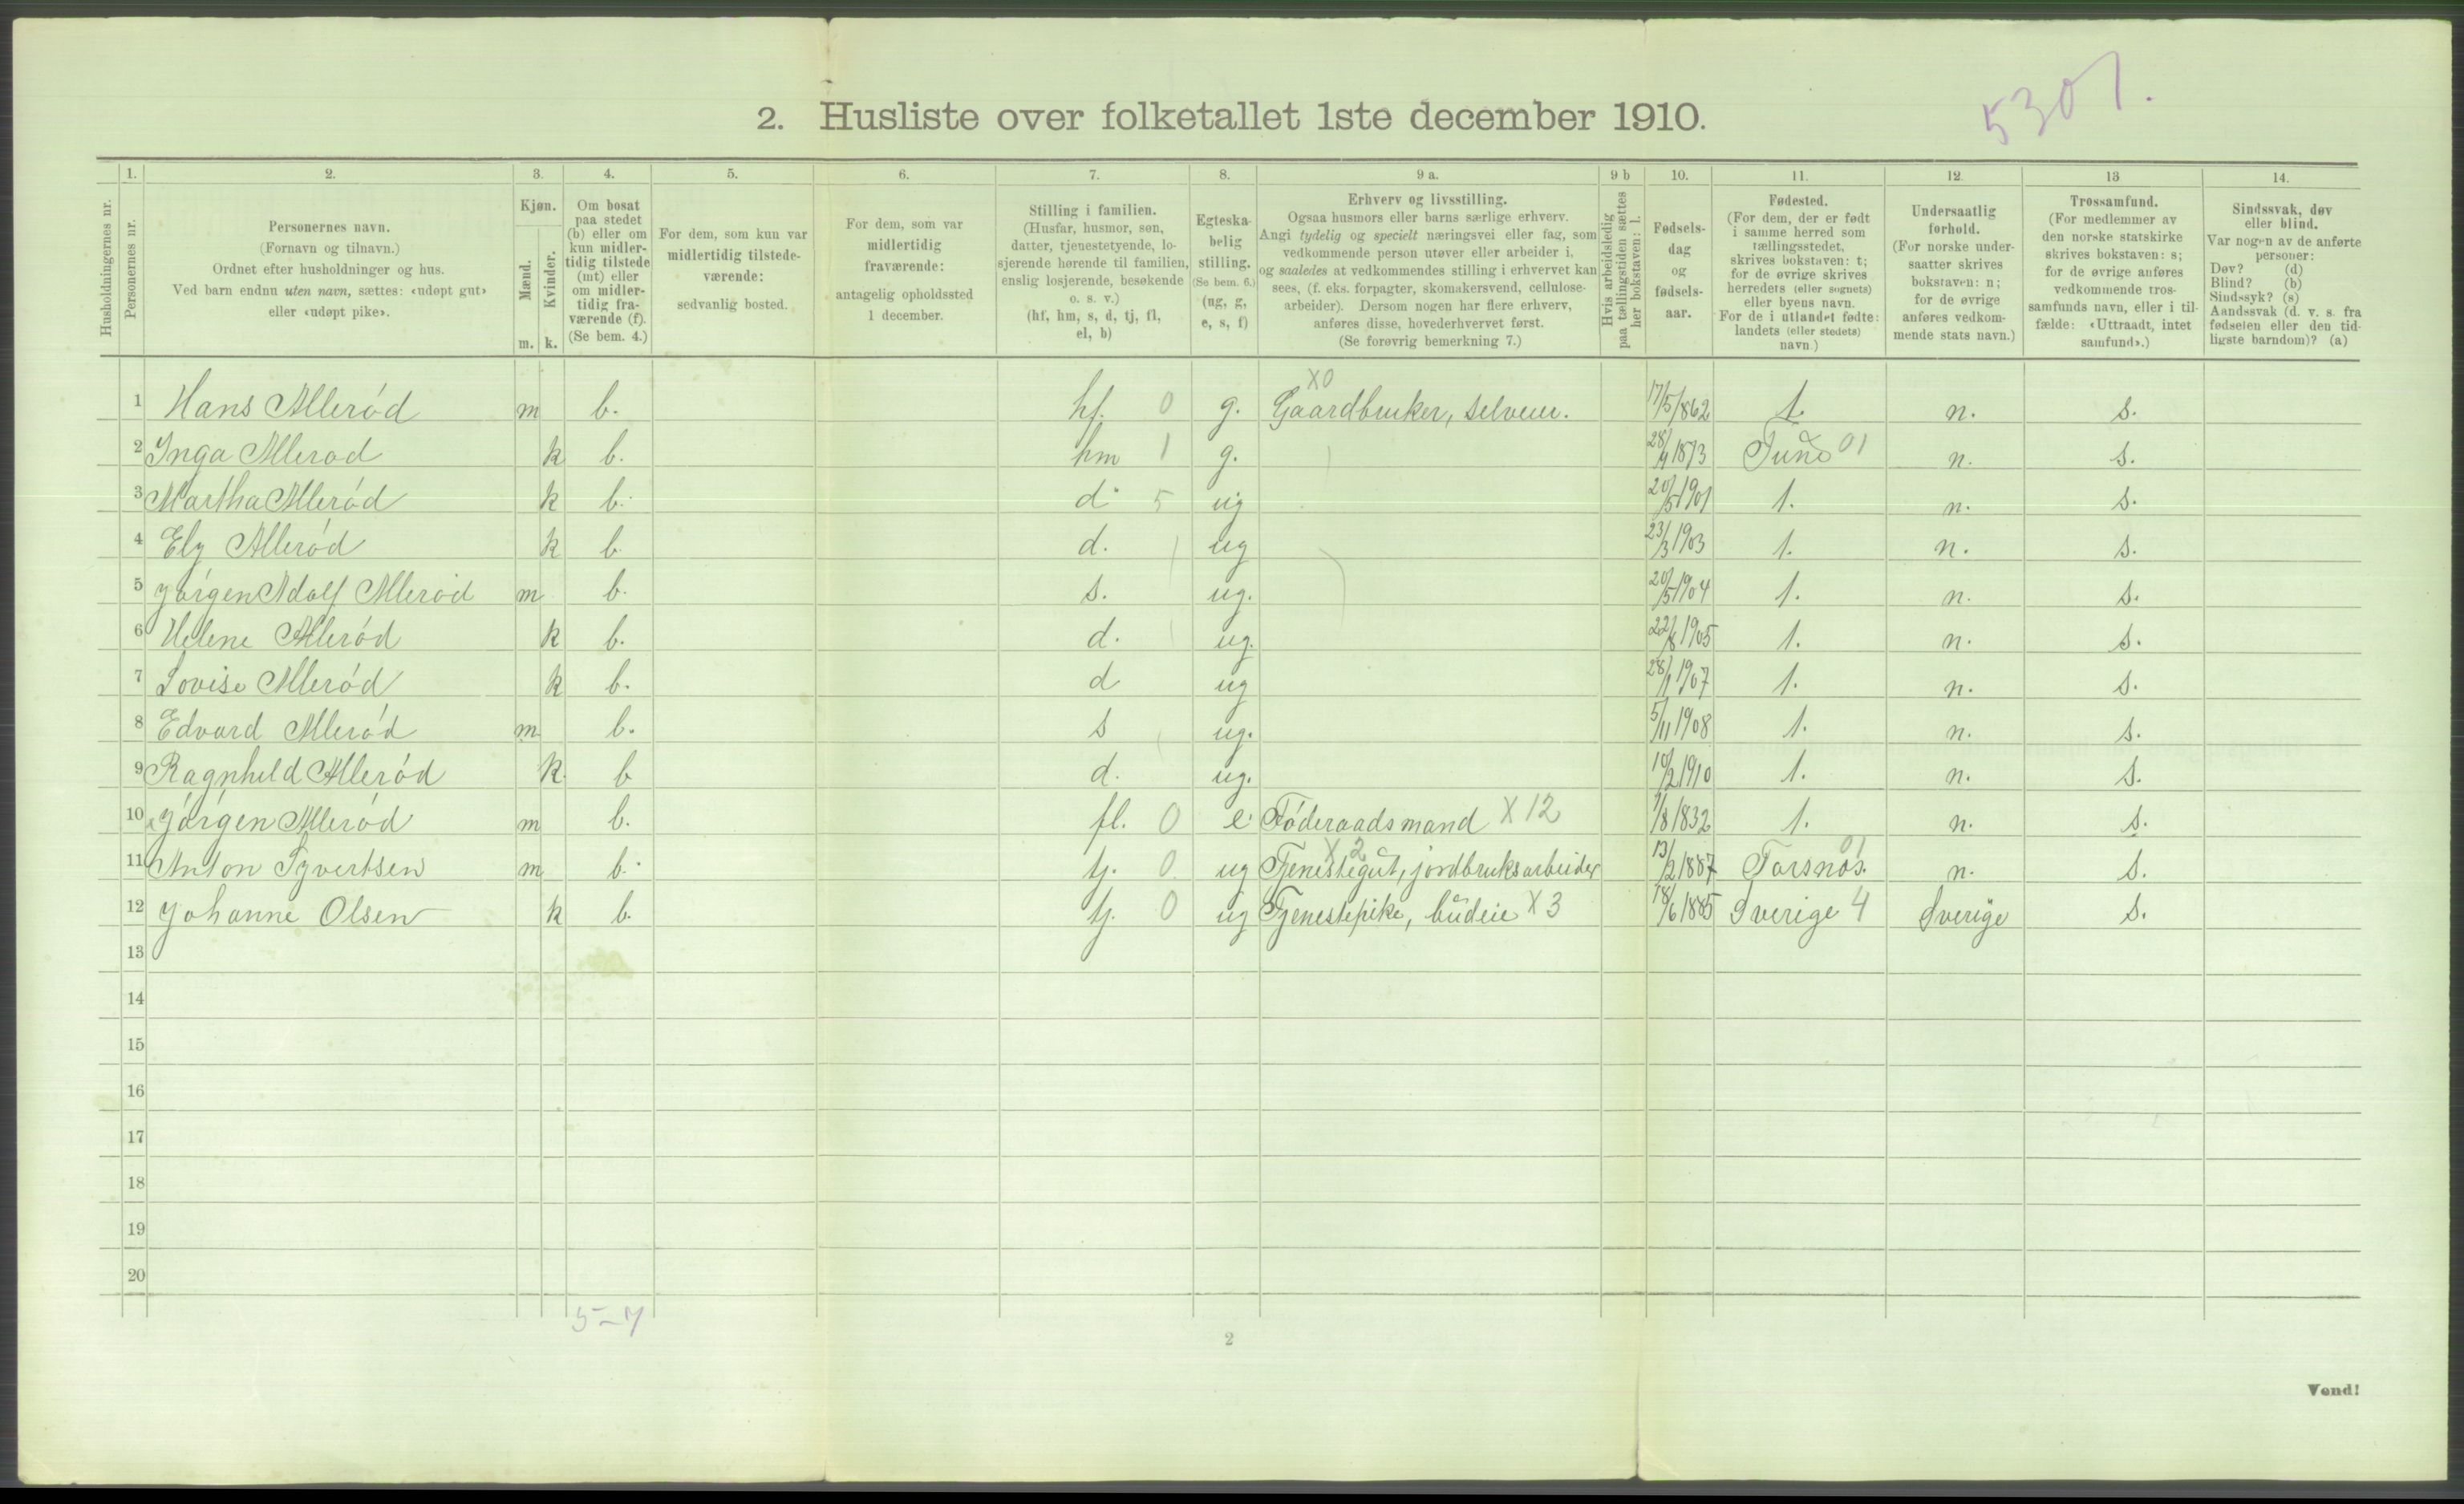 5301.
2. Husliste over folketallet 1ste december 1910.
1. 2. 3. 4. 5. 6. 7. 8. 9 a. 9 b 10. 11. 12. 13 14.
Husholdningernes nr.
Personernes nr.
Personernes navn.
(Fornavn og tilnavn.)
Ordnet efter husholdninger og hus.
Ved barn endnu uten navn, sættes: «udøpt gut»
eller «udøpt pike».
Kjøn.
Mænd.
Kvinder.
m. k.
Om bosat
paa stedet
(b) eller om
kun midler-
tidig tilstede
(mt) eller
om midler-
tidig fra-
værende (f).
(Se bem. 4.)
For dem, som kun var
midlertidig tilstede-
værende:
sedvanlig bosted.
For dem, som var
midlertidig
fraværende:
antagelig opholdssted
1 december.
Stilling i familien.
(Husfar, husmor, søn,
datter, tjenestetyende, lo-
sjerende hørende til familien,
enslig losjerende, besøkende
o. s. v.)
(hf, hm, s, d, tj, fl,
el, b)
Egteska-
belig
stilling.
(Se bem. 6.)
(ug, g,
e, s, f)
Erhverv og livsstilling.
Ogsaa husmors eller barns særlige erhverv.
Angi tydelig og specielt næringsvei eller fag, som
vedkommende person utøver eller arbeider i,
og saaledes at vedkommendes stilling i erhvervet kan
sees, (f. eks. forpagter, skomakersvend, cellulose-
arbeider). Dersom nogen har flere erhverv,
anføres disse, hovederhvervet først.
(Se forøvrig bemerkning 7.)
Hvis arbeidsledig
paa tællingstiden sættes
her bokstaven: l.
Fødsels-
dag
og
fødsels-
aar.
Fødested.
(For dem, der er født
i samme herred som
tællingsstedet,
skrives bokstaven: t;
for de øvrige skrives
herredets (eller sognets)
eller byens navn.
For de i utlandet fødte:
landets (eller stedets)
navn.)
Undersaatlig
forhold.
(For norske under-
saatter skrives
bokstaven: n;
for de øvrige
anføres vedkom-
mende stats navn.)
Trossamfund.
(For medlemmer av
den norske statskirke
skrives bokstaven: s;
for de øvrige anføres
vedkommende tros-
samfunds navn, eller i til-
fælde: «Uttraadt, intet
samfund».)
Sindssvak, døv
eller blind.
Var nogen av de anførte
personer:
Døv? (d)
Blind? (b)
Sindssyk? (s)
Aandssvak (d. v. s. fra
fødselen eller den tid-
ligste barndom)? (a)
X0
1 Hans Allerød m b. hf. 0 g. Gaardbruker, selveier. 17/5 1862 t. n. s.
2 Inga Allerød k b. hm 1 g. 1873 Tune 01 n. s.
3 Martha Allerød k b. d. 5 ug 20/5 1901 t. n. s.
4 Ely Allerød k b. d. ug 23/3 1903 t. n. s.
5 Jørgen Adolf Allerød m b. s. ug. 20/5 1904 t. n. s.
6 Helene Allerød k b. d. ug. 22/8 1905 t. n. s.
7 Lovise Allerød k b. d ug 28/1 1907 t. n. s.
8 Edvard Allerød m b. s ug. 5/11 1908 t. n. s.
9 Ragnhild Allerød k. b d. ug. 10/2 1910 t. n. s.
10 Jørgen Allerød m b. fl. 0 e. Føderaadsmand X 12 1/8 1832 t. n. s.
X 2 01
11 Anton Syvertsen m b. tj. 0 ug Tjenestegut, jordbruksarbeider 13/2 1887 Torsnæs. n. s.
12 Johanne Olsen k b. tj. 0 ug Tjenestepike, budeie X 3 18/6 1885 Sverige 4 Sverige s.
13
14
15
16
17
18
19
20
5-7
2
Vend!